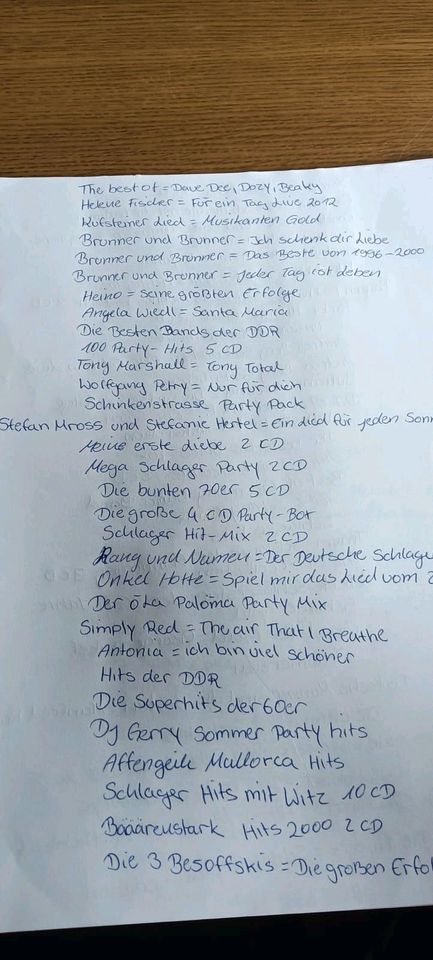 The best of = Dave Dee, Dozy, Beaky
Helene Fischer = Für ein Tag Live 2012
Kufsteiner Lied = Musikanten Gold
Brunner und Brunner = Ich schenk dir Liebe
Brunner und Brunner = Das Beste von 1996-2000
Brunner und Brunner = Jeder Tag ist Leben
Heino = Seine größten Erfolge
Angela Wiedl = Santa Maria
Die Besten Bands der DDR
100 Party-Hits 5 CD
Tony Marshall = Tony Total
Wolfgang Petry = Nur für dich
Schinkenstrasse Party Pack
Stefan Mross und Stefanie Hertel = Ein Lied für jeden Sonn
Meine erste Liebe 2 CD
Mega Schlager Party 2 CD
Die bunten 70er 5 CD
Die große 4 CD Party-Box
Schlager Hit-Mix 2 CD
Rang und Namen = Der Deutsche Schlage
Onkel Hotte = Spiel mir das Lied vom
Der Öla Paloma Party Mix
Simply Red = The air That I Breathe
Antonia = ich bin viel schöner
Hits der DDR
Die Superhits der 60er
Dj Gerry Sommer Party hits
Affengeile Mallorca Hits
Schlager Hits mit Witz 10 CD
Bäääreustark Hits 2000 2 CD
Die 3 Besoffskis = Die großen Erfol